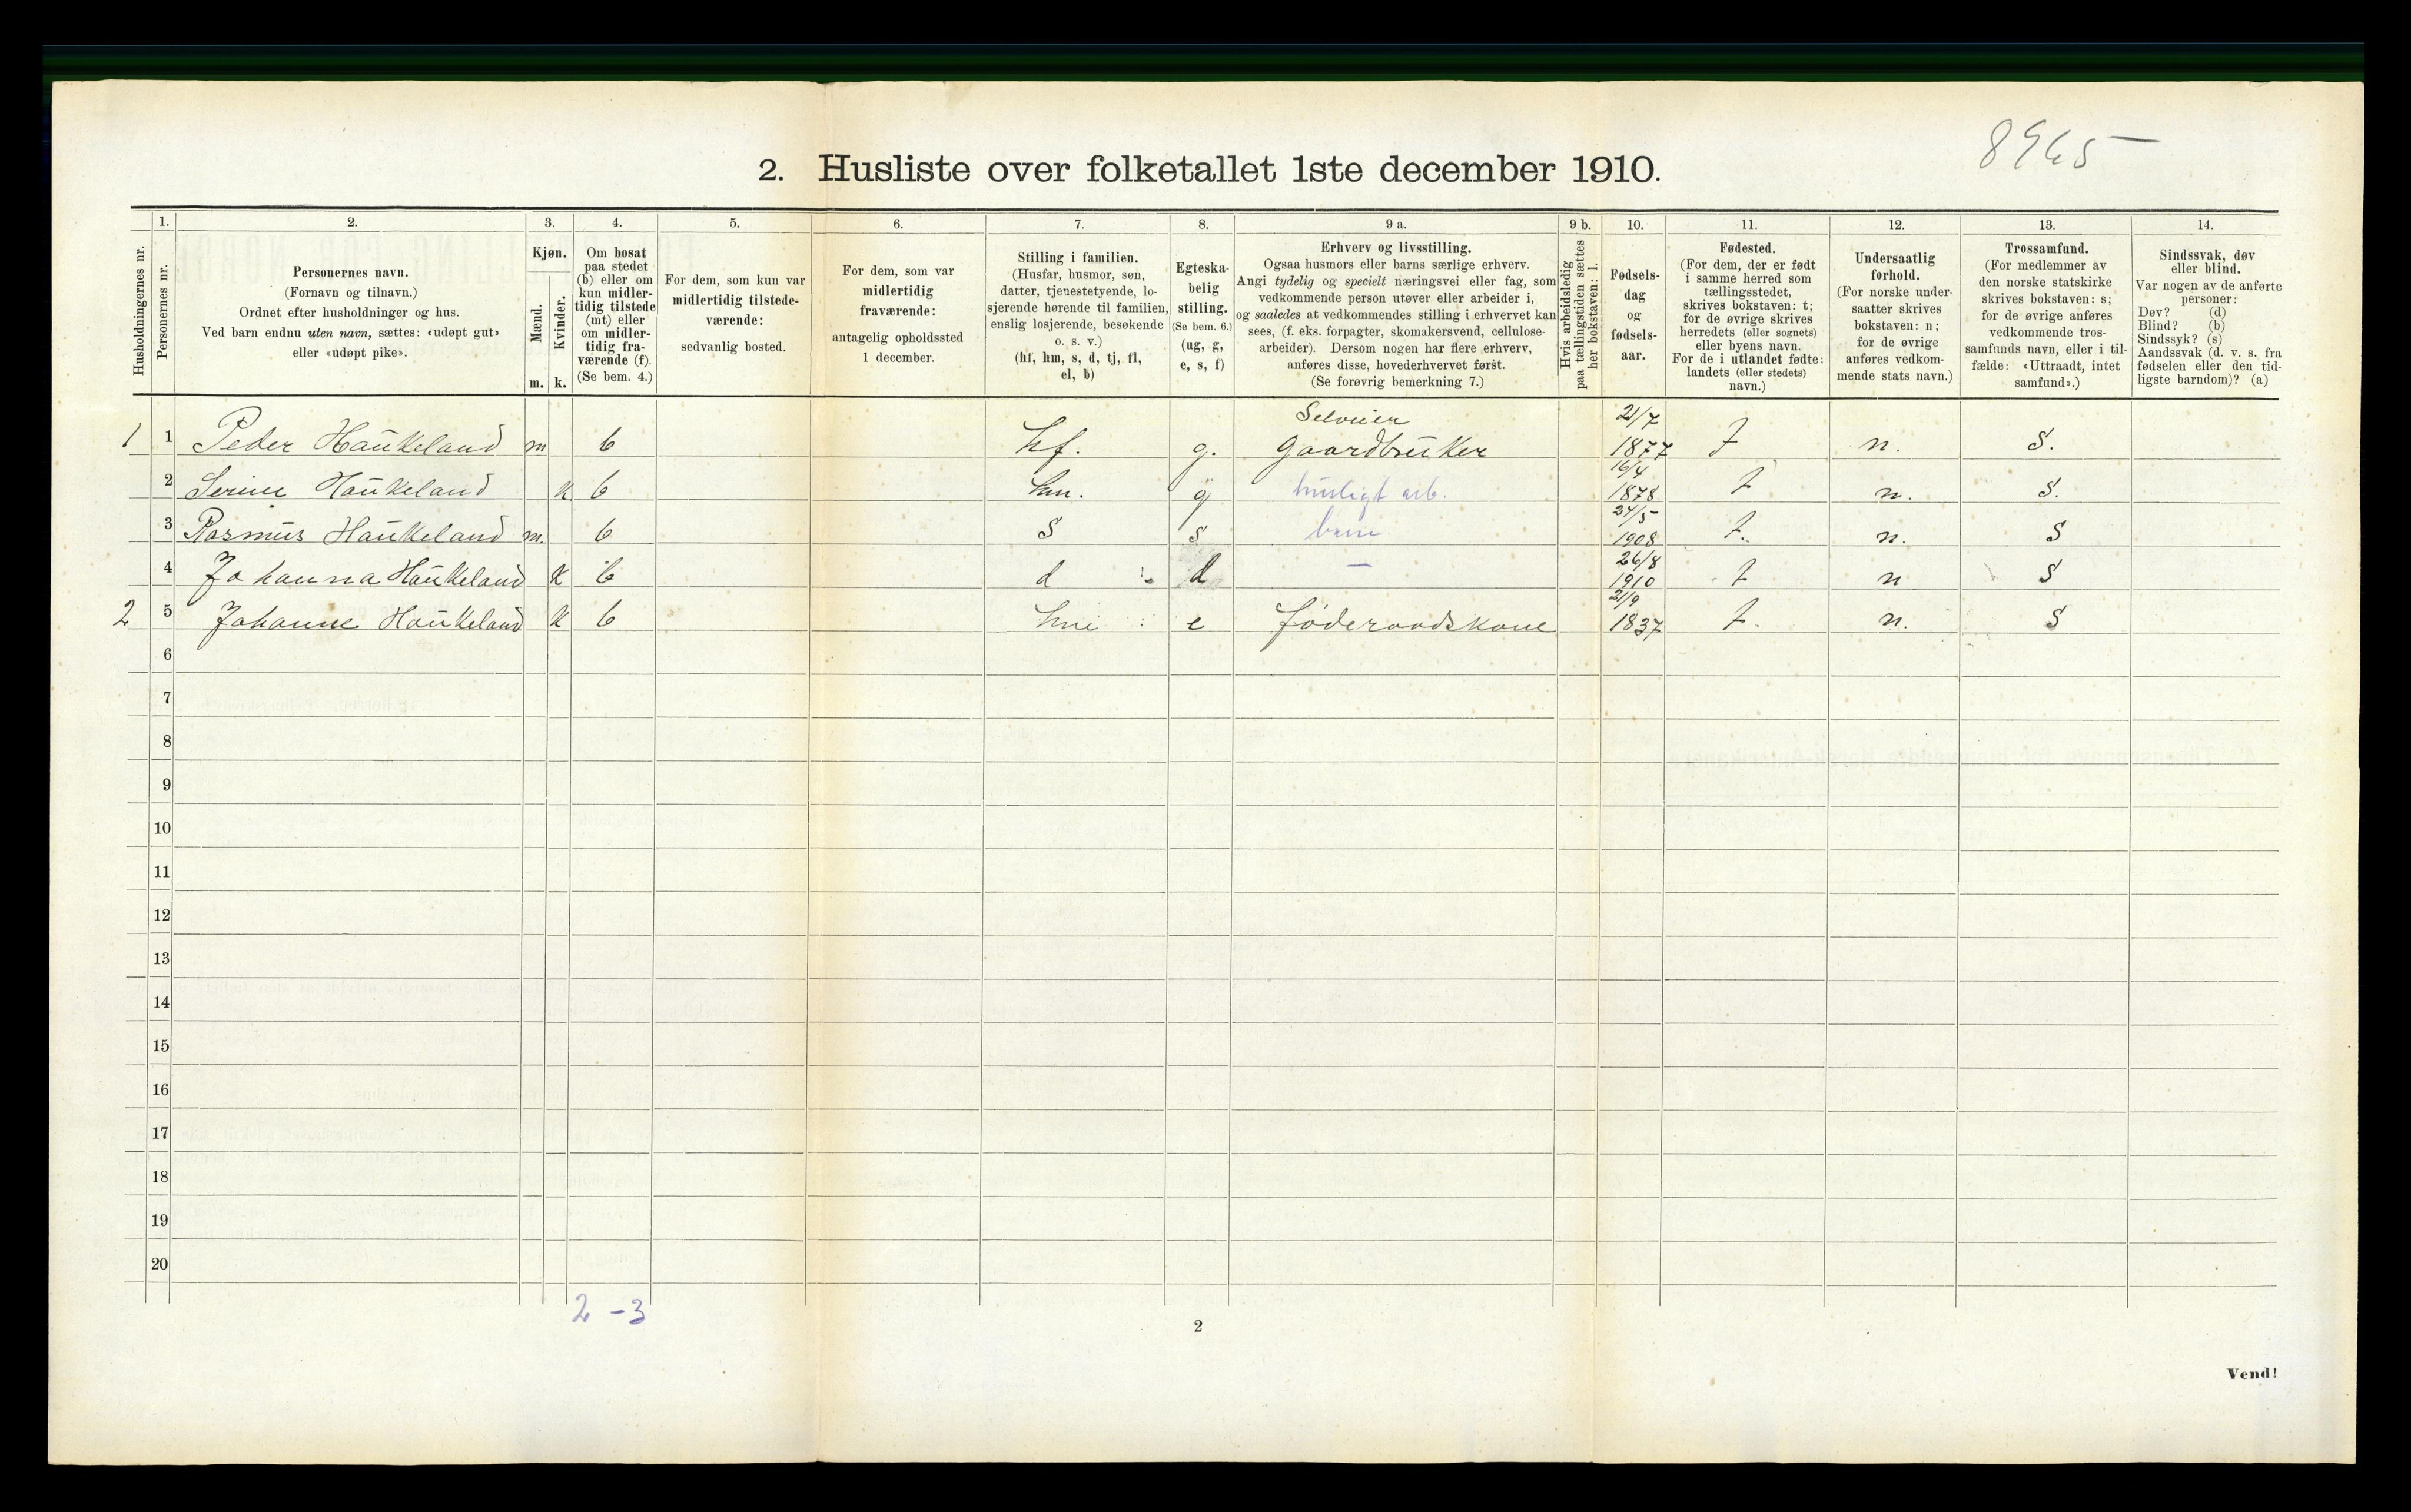 8965
2. Husliste over folketallet 1ste december 1910.
Husholdningernes nr.
1.
Personernes nr.
2.
Personernes navn.
(Fornavn og tilnavn.)
Ordnet efter husholdninger og hus.
Ved barn endnu uten navn, sættes: «udøpt gut»
eller «udøpt pike».
3.
Kjøn.
Mænd.
Kvinder.
m. k.
4.
Om bosat
paa stedet
(b) eller om
kun midler-
tidig tilstede
(mt) eller
om midler-
tidig fra-
værende (f).
(Se bem. 4.)
5.
For dem, som kun var
midlertidig tilstede-
værende:
sedvanlig bosted.
6.
For dem, som var
midlertidig
fraværende:
antagelig opholdssted
1 december.
7.
Stilling i familien.
(Husfar, husmor, søn,
datter, tjenestetyende, lo-
sjerende hørende til familien,
enslig losjerende, besøkende
o. s. v.)
(hf, hm, s, d, tj, fl,
el, b)
8.
Egteska-
belig
stilling.
(Se bem. 6.)
(ug, g,
e, s, f)
9 a.
Erhverv og livsstilling.
Ogsaa husmors eller barns særlige erhverv.
Angi tydelig og specielt næringsvei eller fag, som
vedkommende person utøver eller arbeider i,
og saaledes at vedkommendes stilling i erhvervet kan
sees, (f. eks. forpagter, skomakersvend, cellulose-
arbeider). Dersom nogen har flere erhverv,
anføres disse, hovederhvervet først.
(Se forøvrig bemerkning 7.)
9 b.
Hvis arbeidsledig
paa tællingstiden sættes
her bokstaven: l.
10.
Fødsels-
dag
og
fødsels-
aar.
11.
Fødested.
(For dem, der er født
i samme herred som
tællingsstedet,
skrives bokstaven: t;
for de øvrige skrives
herredets (eller sognets)
eller byens navn.
For de i utlandet fødte:
landets (eller stedets)
navn.)
12.
Undersaatlig
forhold.
(For norske under-
saatter skrives
bokstaven: n;
for de øvrige
anføres vedkom-
mende stats navn.)
13.
Trossamfund.
(For medlemmer av
den norske statskirke
skrives bokstaven: s;
for de øvrige anføres
vedkommende tros-
samfunds navn, eller i til-
fælde: «Uttraadt, intet
samfund».)
14.
Sindssvak, døv
eller blind.
Var nogen av de anførte
personer:
Døv? (d)
Blind? (b)
Sindssyk? (s)
Aandssvak (d. v. s. fra
fødselen eller den tid-
ligste barndom)? (a)
1 1 Peder Haukeland m b hf. g. Selveier Gaardbruker 21/7 1877 t n. S.
2 Serine Haukeland k b hm. g husligt arb. 16/4 1878 t n. S.
3 Rasmus Haukeland m. b S s barn 24/5 1908 t. n. S
4 Johanna Haukeland k b d d — 26/8 1910 t n S
2 5 Johanne Haukeland k b e føderaadskone 21/9 1837 t. n. S
6
7
8
9
10
11
12
13
14
15
16
17
18
19
20
2 - 3
2
Vend!